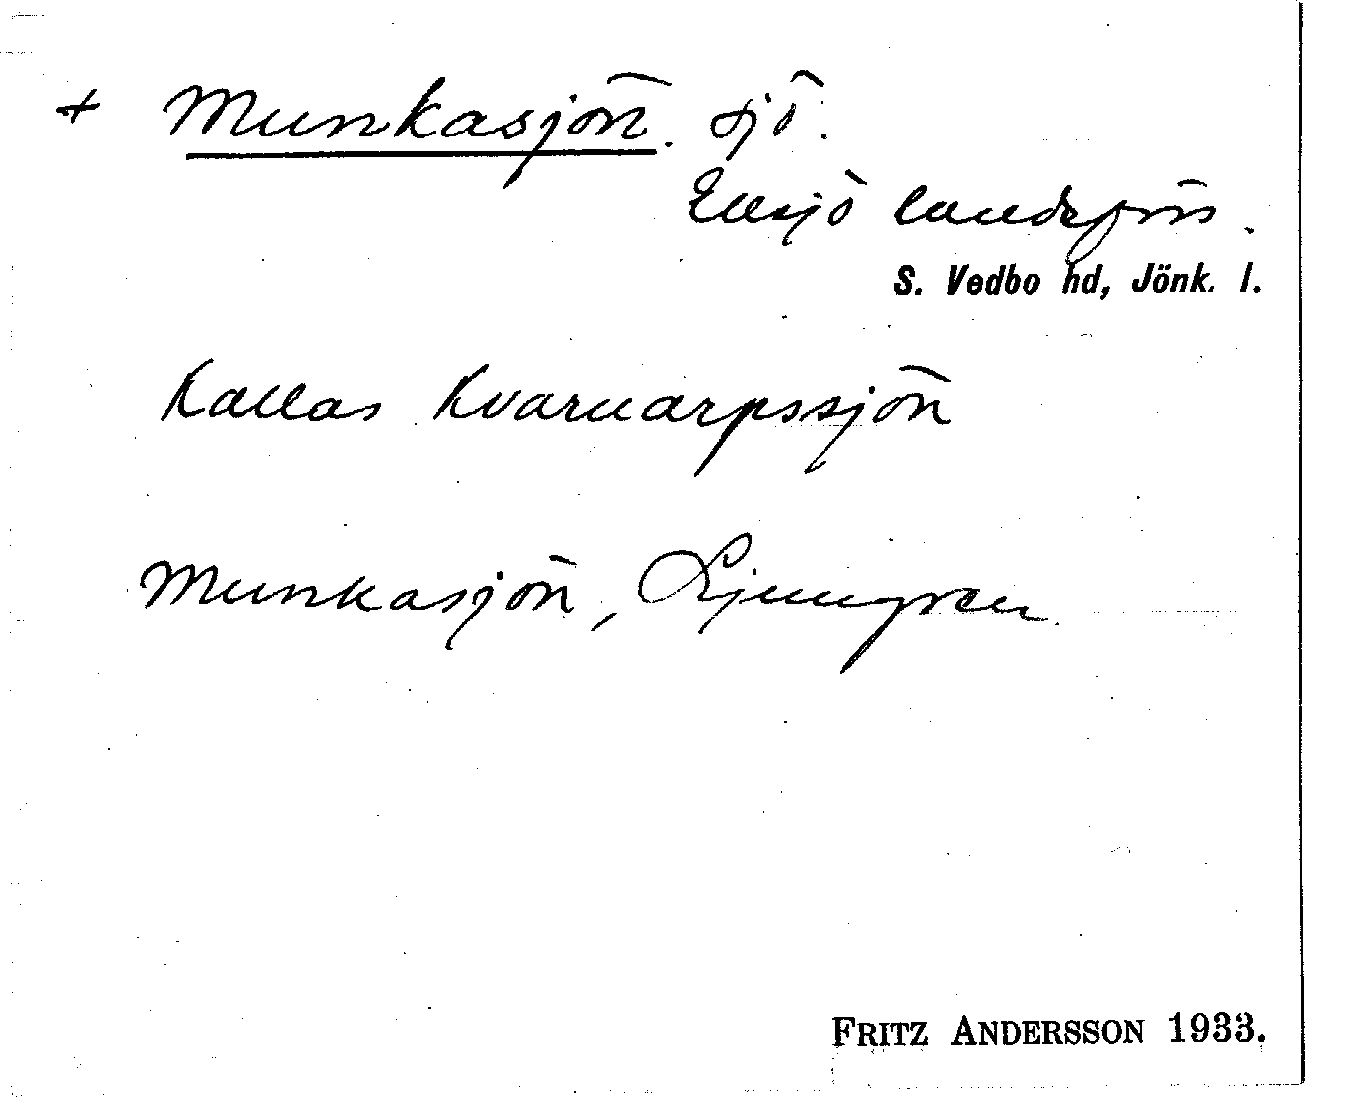 + Munkasjön. sjö.
Eksjö landsförs.
S. Vedbo hd, Jönk. l.
Kallas Kvarnarpssjön
Munkasjön, Ljunggren
FRITZ ANDERSSON 1933.